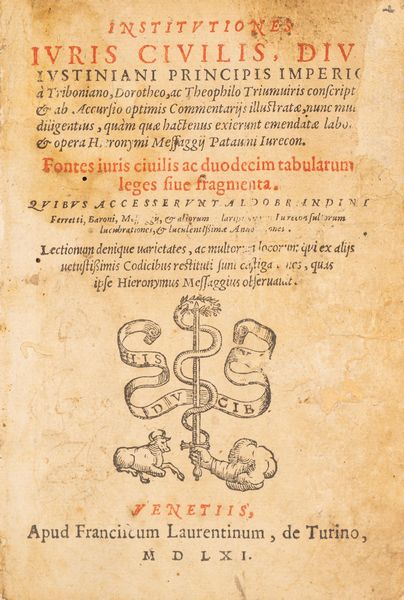 INSTITVTIONES
IVRIS CIVILIS, DIV
IVSTINIANI PRINCIPIS IMPERIO
à Triboniano, Dorotheo, ac Theophilo Triumuiris conscript
& ab Accursio optimis Commentarijs illustratæ, nunc mul
diligentius, quàm quæ hactenus exierunt emendatæ labo
& opera Hieronymi Messaggij Patauni Iurecon.
Fontes iuris ciuilis ac duodecim tabularum
leges siue fragmenta.
QVIBVS ACCESSERVNT ALDOBRANDINI
Ferretti, Baroni, & aliorum Iureconsultorum
lucubrationes, & luculentissimæ
Lectionum denique uarietates, ac multorum locorum qui ex alijs
uetustissimis Codicibus restituti sunt castiga nes, quas
ipse Hieronymus Messaggius obseruauit.
HIS
DVCIB
VENETIIS,
Apud Franciscum Laurentinum, de Turino,
MDLXI.